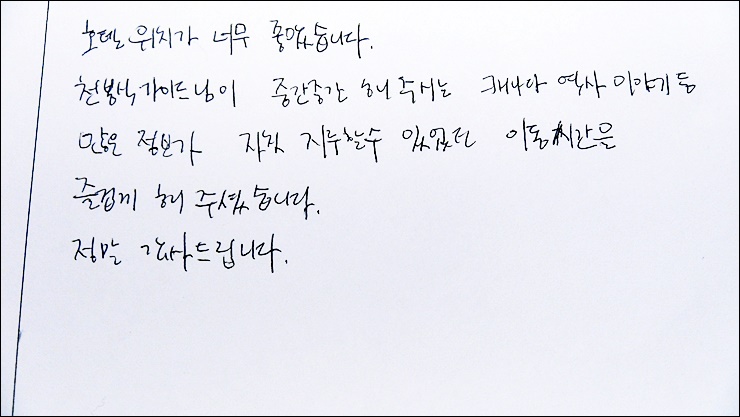 호텔 위치가 너무 좋았습니다.
천봉식가이드님이 중간중간 해주시는 캐나다 역사 이야기 등
많은 정보가 자칫 지루할수 있었던 이동시간을
즐겁게 해 주셨습니다.
정말 감사드립니다.